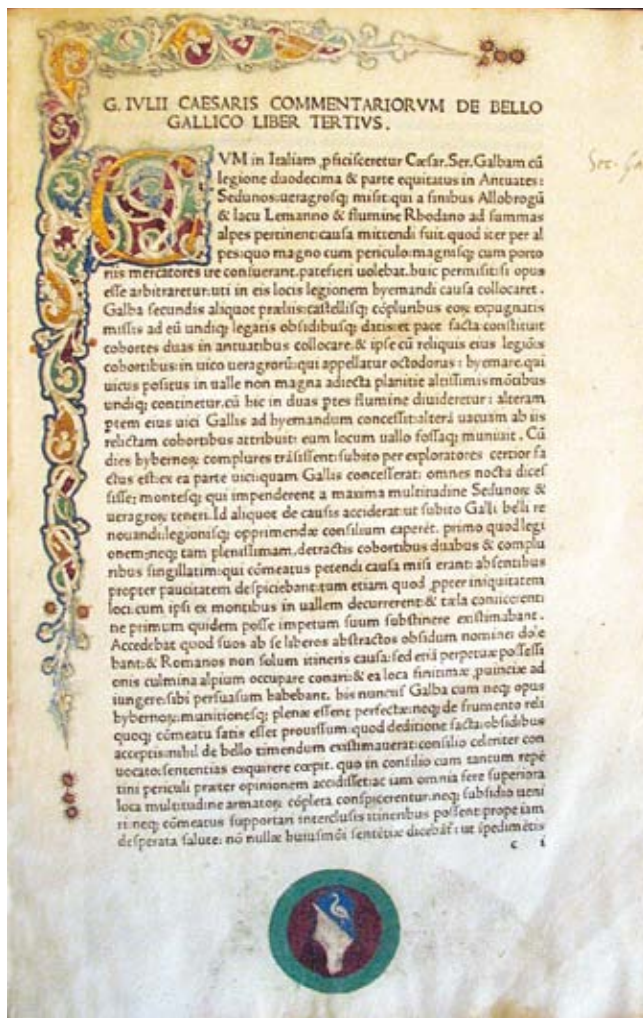 G. IVLII CAESARIS COMMENTARIORVM DE BELLO
GALLICO LIBER TERTIVS.
CVM in Italiam ꝓficiſceretur Cæſar. Ser. Galbam cū
legione duodecima & parte equitatus in Antuates:
Sedunos: ueragroſq; miſit: qui a finibus Allobrogū
& lacu Lemanno & flumine Rhodano ad ſummas
alpes pertinent: cauſa mittendi fuit quod iter per al
pes: quo magno cum periculo: magniſq; cum porto
riis mercatores ire conſuerant. patefieri uolebat. huic permiſit: ſi opus
eſſe arbitraretur: uti in eis locis legionem hyemandi cauſa collocaret.
Galba ſecundis aliquot præliis: caſtelliſq; cōpluribus eoꝝ expugnatis
miſſis ad eū undiq; legatis obſidibuſq; datis: et pace facta conſtituit
cohortes duas in antuatibus collocare. & ipſe cū reliquis eius legiōis
cohortibus: in uico ueragrorū: qui appellatur octodorus: hyemare. qui
uicus poſitus in ualle non magna adiecta planitie altiſſimis mōtibus
undiq; continetur. cū hic in duas ptes flumine diuideretur: alteram
ptem eius uici Gallis ad hyemandum conceſſit: alterā uacuam ab iis
relictam cohortibus attribuit: eum locum uallo foſſaq; muniuit. Cū
dies hybernoꝝ complures trāſiſſent: ſubito per exploratores certior fa
ctus eſt: ex ea parte uici: quam Gallis conceſſerat: omnes noctu diceſ
ſiſſe: monteſq; qui impenderent a maxima multitudine Sedunoꝝ &
ueragroꝝ teneri. Id aliquot de cauſis acciderat: ut ſubito Galli belli re
nouandi: legioniſq; opprimendæ conſilium caperēt. primo quod legi
onem: neq; tam pleniſſimam, detractis cohortibus duabus & complu
ribus ſingillatim: qui cōmeatus petendi cauſa miſi erant: abſentibus
propter paucitatem deſpiciebant: tum etiam quod ꝓpter iniquitatem
loci: cum ipſi ex montibus in uallem decurrerent: & tæla coniicerent:
ne primum quidem poſſe impetum ſuum ſubſtinere exiſtimabant.
Accedebat quod ſuos ab ſe liberos abſtractos obſidum nomine: dole
bant: & Romanos non ſolum itineris cauſa: ſed etiā perpetuæ poſſeſſi
onis culmina alpium occupare conari: & ea loca finitimæ ꝓuinciæ ad
iungere: ſibi perſuaſum habebant. his nunciis Galba cum neq; opus
hybernoꝝ: munitioneſq; plenæ eſſent perfectæ: neq; de frumento reli
quoq; cōmeatu ſatis eſſet prouiſſum: quod deditione facta: obſidibus
acceptis: nihil de bello timendum exiſtimauerat: conſilio celeriter con
uocato: ſententias exquirere cœpit. quo in conſilio cum tantum repē
tini periculi præter opinionem accidiſſet: ac iam omnia fere ſuperiora
loca multitudine armatoꝝ cōpleta conſpicerentur. neq; ſubſidio ueni
ri: neq; cōmeatus ſupportari intercluſis itineribus poſſent: prope iam
deſperata ſalute: nō nullæ huiuſmōi ſentētiæ dicebāt: ut īpedimētis
c i
Ser. Ga